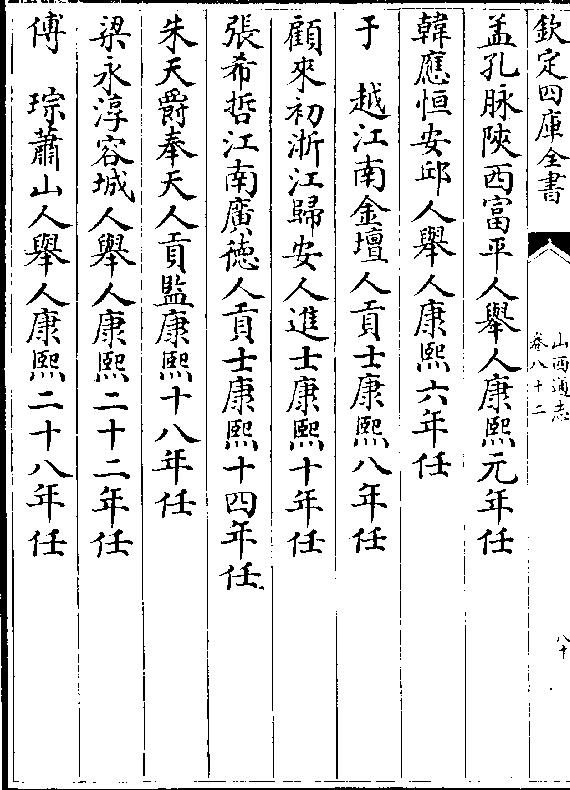 欽定四庫全書
山西通志
卷八十二
八十
孟孔脉陜西富平人舉人康熙元年任
韓應恒安邱人舉人康熙六年任
于　越江南金壇人貢士康熙八年任
顧來初浙江歸安人進士康熙十年任
張希哲江南廣德人貢士康熙十四年任
朱天爵奉天人貢監康熙十八年任
梁永淳容城人舉人康熙二十二年任
傅　琮蕭山人舉人康熙二十八年任